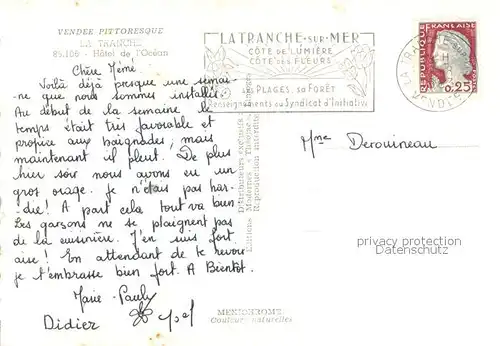 VENDEE PITTORESQUE
LA TRANCHE
85.106 - Hôtel de l'Océan
Chère Mémé
Voilà déjà presque une semai-
ne que nous sommes installés.
Au début de la semaine le
temps était très favorable et
propice aux baignades, mais
maintenant il pleut. De plus
hier soir nous avons eu un
gros orage. Je n'étais pas har-
die! A part cela tout va bien.
Les garçons ne se plaignent pas
de la cuisinière. J'en suis fort
aise! En attendant de te revoir
je t'embrasse bien fort. A Bientôt.
Marie-Pauly
Didier
MEXICHROME
Couleurs naturelles
Reproduction interdite
LA TRANCHE-SUR-MER
CÔTE DE LUMIÈRE
CÔTE DES FLEURS
SES PLAGES, sa FORÊT
Renseignements au Syndicat d'Initiative
LA TRA
VENDÉE
REPUBLIQUE
FRANÇAISE
0,25
Mme Derouineau
privacy protection
Datenschutz